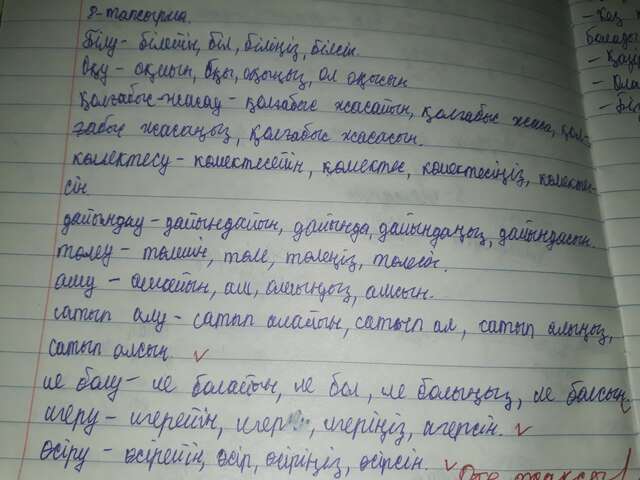 8-тапсырма.
Білу - білейін, біл, біліңіз, білсін.
Оқу - оқиын, Оқы, оқыңыз, ол оқысын
Қолғабыс-жасау - қолғабыс жасайын, қолғабыс жаса, қол-
ғабыс жасаңыз, қолғабыс жасасын.
көмектесу - көмектесейін, көмектес, көмектесіңіз, көмектес-
сін
дайындау - дайындайын, дайында, дайындаңыз, дайындасын.
төлеу - төлейін, төле, төлеңіз, төлесін.
ашу - ашайын, аш, ашыңыз, ашсын.
сатып алу - сатып алайын, сатып ал, сатып алыңыз,
сатып алсын.
ие болу - ие болайын, ие бол, ие болыңыз, ие болсын.
игеру - игерейін, игер, игеріңіз, игерсін.
өсіру - өсірейін, өсір, өсіріңіз, өсірсін.
Өте жақсы!
- Қаз
болады
- Қаже
- Ола
- Біз